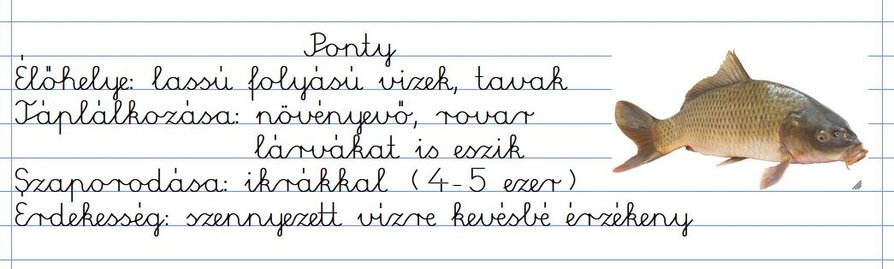 Ponty
Élőhelye: lassú folyású vizek, tavak
Táplálkozása: növényevő, rovar
lárvákat is eszik
Szaporodása: ikrákkal (4-5 ezer)
Érdekesség: szennyezett vízre kevésbé érzékeny